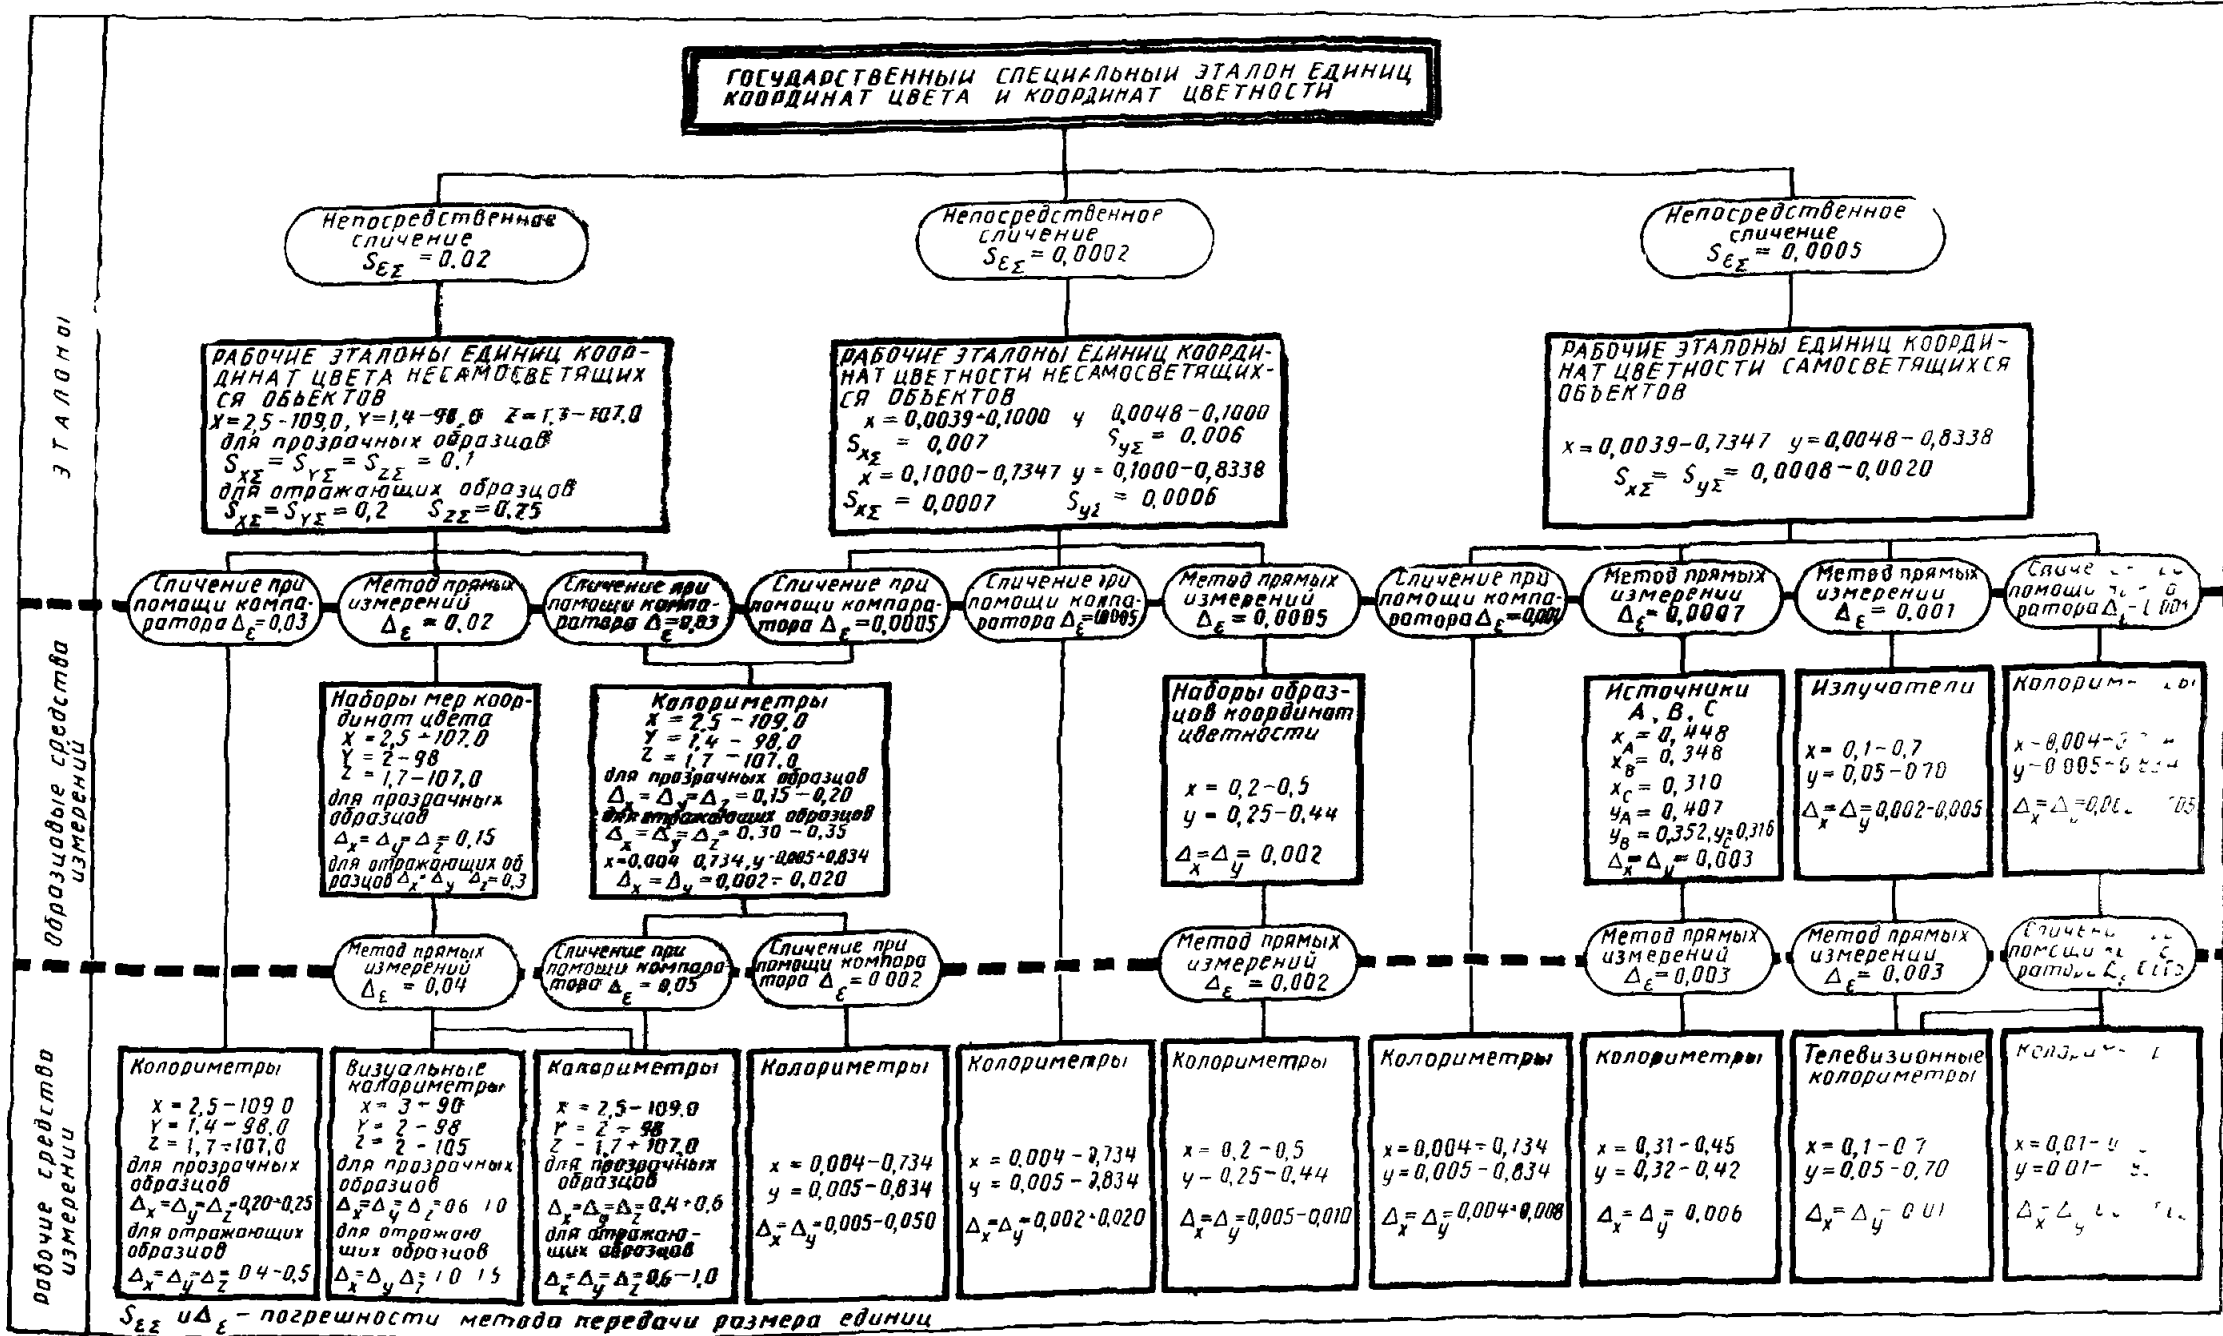 ГОСУДАРСТВЕННЫЙ СПЕЦИАЛЬНЫЙ ЭТАЛОН ЕДИНИЦ
КООРДИНАТ ЦВЕТА И КООРДИНАТ ЦВЕТНОСТИ
ЭТАЛОНЫ
Непосредственное
сличение
S_εΣ = 0.02
Непосредственное
сличение
S_εΣ = 0,0002
Непосредственное
сличение
S_εΣ = 0,0005
РАБОЧИЕ ЭТАЛОНЫ ЕДИНИЦ КООР-
ДИНАТ ЦВЕТА НЕСАМОСВЕТЯЩИХ
СЯ ОБЪЕКТОВ
X=2,5-109,0, Y=1,4-98,0 Z=1,7-107,0
для прозрачных образцов
S_XΣ = S_YΣ = S_ZΣ = 0,1
для отражающих образцов
S_XΣ = S_YΣ = 0,2 S_ZΣ = 0,25
РАБОЧИЕ ЭТАЛОНЫ ЕДИНИЦ КООРДИ-
НАТ ЦВЕТНОСТИ НЕСАМОСВЕТЯЩИХ-
СЯ ОБЪЕКТОВ
x = 0,0039÷0,1000 y 0,0048-0,1000
S_xΣ = 0,007 S_yΣ = 0,006
x = 0,1000-0,7347 y = 0,1000-0,8338
S_xΣ = 0,0007 S_yΣ = 0,0006
РАБОЧИЕ ЭТАЛОНЫ ЕДИНИЦ КООРДИ-
НАТ ЦВЕТНОСТИ САМОСВЕТЯЩИХСЯ
ОБЪЕКТОВ
x = 0,0039-0,7347 y = 0,0048-0,8338
S_xΣ = S_yΣ = 0,0008-0,0020
Сличение при
помощи компа-
ратора Δ_ε = 0,03
Метод прямых
измерений
Δ_ε = 0,02
Сличение при
помощи компа-
ратора Δ_ε = 0,03
Сличение при
помощи компара-
тора Δ_ε = 0,0005
Сличение при
помощи компа-
ратора Δ_ε = 0,0005
Метод прямых
измерений
Δ_ε = 0,0005
Сличение при
помощи компа-
ратора Δ_ε =
Метод прямых
измерении
Δ_ε = 0,0007
Метод прямых
измерении
Δ_ε = 0,001
помощи
ратора Δ_ε
Образцовые средства
измерений
Наборы мер коор-
динат цвета
X = 2,5 ÷ 107,0
Y = 2-98
Z = 1,7-107,0
для прозрачных
образцов
Δ_x = Δ_y = Δ_z = 0,15
для отражающих об
разцов Δ_x = Δ_y Δ_z = 0,3
Колориметры
X = 2,5 - 109,0
Y = 1,4 - 98,0
Z = 1,7 - 107,0
для прозрачных образцов
Δ_x = Δ_y = Δ_z = 0,15-0,20
для отражающих образцов
Δ_x = Δ_y = Δ_z = 0,30-0,35
x=0,004 0,734, y=0,005÷0,834
Δ_x = Δ_y = 0,002÷0,020
Наборы образ-
цов координат
цветности
x = 0,2-0,5
y = 0,25-0,44
Δ_x = Δ_y = 0,002
Источники
A, B, C
x_A = 0,448
x_B = 0,348
x_C = 0,310
y_A = 0,407
y_B = 0,352, y_C = 0,316
Δ_x = Δ_y = 0,003
Излучатели
x = 0,1-0,7
y = 0,05-070
Δ_x = Δ_y = 0,002-0,005
Δ_x = Δ_y
Метод прямых
измерений
Δ_ε = 0,04
Сличение при
помощи компара-
тора Δ_ε = 0,05
Сличение при
помощи компара
тора Δ_ε = 0 002
Метод прямых
измерений
Δ_ε = 0,002
Метод прямых
измерений
Δ_ε = 0,003
Метод прямых
измерении
Δ_ε = 0,003
рабочие средства
измерении
Колориметры
X = 2,5-109 0
Y = 1,4-98,0
Z = 1,7÷107,0
для прозрачных
образцов
Δ_x = Δ_y = Δ_z = 0,20÷0,25
для отражающих
образцов
Δ_x = Δ_y = Δ_z = 04-0,5
Визуальные
колориметры
X = 3-90
Y = 2-98
Z = 2-105
для прозрачных
образцов
Δ_x = Δ_y Δ_z = 06 10
для отражаю
щих образцов
Δ_x = Δ_y Δ_z = 10 15
Колориметры
X = 2,5-109,0
Y = 2-98
Z - 1,7÷107,0
для прозрачных
образцов
Δ_x = Δ_y = Δ_z = 0,4÷0,6
для отражаю-
щих образцов
Δ_x = Δ_y = Δ_z = 0,6-1,0
Колориметры
x = 0,004-0,734
y = 0,005-0,834
Δ_x = Δ_y = 0,005-0,050
Колориметры
x = 0,004-0,734
y = 0,005-0,834
Δ_x = Δ_y = 0,002÷0,020
Колориметры
x = 0,2-0,5
y - 0,25-0,44
Δ_x = Δ_y = 0,005-0,010
Колориметры
x = 0,004÷0,734
y = 0,005-0,834
Δ_x = Δ_y = 0,004÷0,008
Колориметры
x = 0,31-0,45
y = 0,32-0,42
Δ_x = Δ_y = 0,006
Телевизионные
колориметры
x = 0,1-07
y = 0,05-0,70
Δ_x = Δ_y - 001
x = 0,01-
y = 001-
S_εΣ и Δ_ε - погрешности метода передачи размера единиц